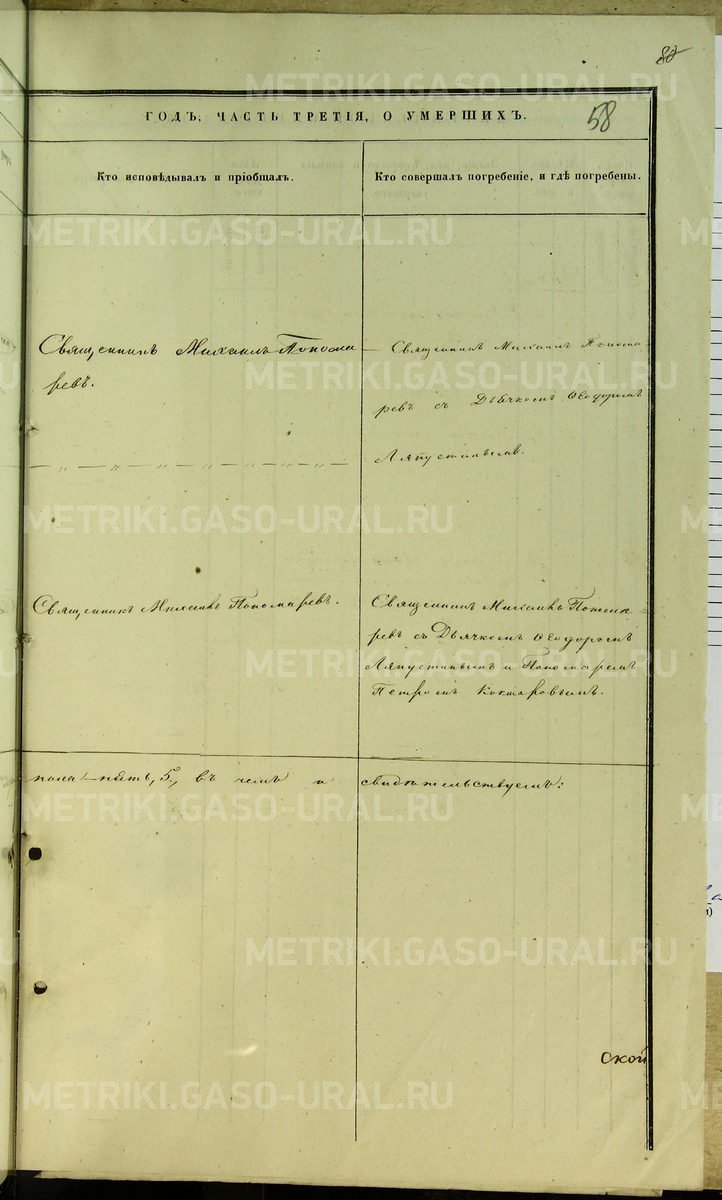 82
ГОДЪ, ЧАСТЬ ТРЕТІЯ, О УМЕРШИХЪ.
58
Кто исповѣдывалъ и пріобщалъ.
Кто совершалъ погребеніе, и гдѣ погребены.
Священникъ Михаилъ Понома
ревъ.
Священникъ Михаилъ Понома-
ревъ съ Дьячкомъ Ѳеодоромъ
Ляпустинымъ.
Священникъ Михаилъ Пономаревъ.
Священникъ Михаилъ Понома-
ревъ съ Дьячкомъ Ѳеодоромъ
Ляпустинымъ и Пономаремъ
Петромъ
пола пять, 5, въ чемъ и свидѣтельствуемъ:
ской
METRIKI.GASO-URAL.RU